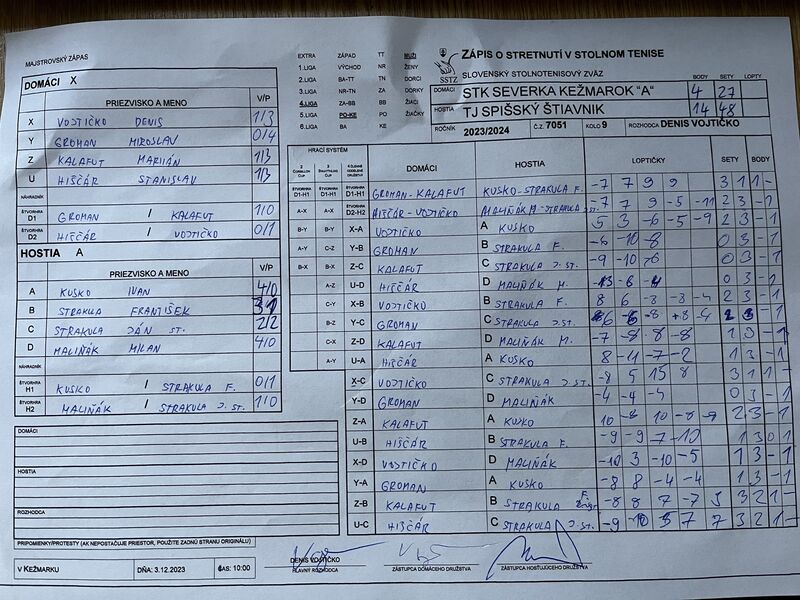 MAJSTROVSKÝ ZÁPAS
EXTRA ZÁPAD TT MUŽI
1.LIGA VÝCHOD NR ŽENY
2.LIGA BA-TT TN DORCI
3.LIGA NR-TN ZA DORKY
4.LIGA ZA-BB BB ŽIACI
5.LIGA PO-KE PO ŽIAČKY
6.LIGA BA KE
SSTZ
ZÁPIS O STRETNUTÍ V STOLNOM TENISE
SLOVENSKÝ STOLNOTENISOVÝ ZVÄZ
BODY SETY LOPTY
DOMÁCI STK SEVERKA KEŽMAROK "A" 4 27
HOSTIA TJ SPIŠSKÝ ŠTIAVNIK 14 48
ROČNÍK 2023/2024 Č.Z. 7051 KOLO 9 ROZHODCA DENIS VOJTIČKO
DOMÁCI X
PRIEZVISKO A MENO V/P
X VOJTIČKO DENIS 1/3
Y GROMAN MIROSLAV 0/4
Z KALAFUT MARIÁN 1/3
U HIŠČÁR STANISLAV 1/3
NÁHRADNÍK
ŠTVORHRA D1 GROMAN / KALAFUT 1/0
ŠTVORHRA D2 HIŠČÁR / VOJTIČKO 0/1
HOSTIA A
PRIEZVISKO A MENO V/P
A KUŠKO IVAN 4/0
B STRAKULA FRANTIŠEK 3/1
C STRAKULA JÁN ST. 2/2
D MALIŇÁK MILAN 4/0
NÁHRADNÍK
ŠTVORHRA H1 KUSKO / STRAKULA F. 0/1
ŠTVORHRA H2 MALIŇÁK / STRAKULA J. ST. 1/0
DOMÁCI
HOSTIA
ROZHODCA
PRIPOMIENKY/PROTESTY (AK NEPOSTAČUJE PRIESTOR, POUŽITE ZADNÚ STRANU ORIGINÁLU)
V KEŽMARKU DŇA: 3.12.2023 ČAS: 10:00
HRACÍ SYSTÉM
DOMÁCI HOSTIA LOPTIČKY SETY BODY
ŠTVORHRA D1-H1 ŠTVORHRA D1-H1 ŠTVORHRA D1-H1 GROMAN - KALAFUT KUSKO - STRAKULA F. -7 7 9 9 3 1 1 -
A-X A-X ŠTVORHRA D2-H2 HIŠČÁR - VOJTIČKO MALIŇÁK M - STRAKULA ST. -7 7 9 -5 -11 2 3 - 1
B-Y B-Y X-A VOJTIČKO A KUŠKO 5 3 -6 -5 -9 2 3 - 1
A-Y C-Z Y-B GROMAN B STRAKULA F. -6 -10 -8 0 3 - 1
B-X B-X Z-C KALAFUT C STRAKULA J. ST. -9 -10 0 3 - 1
A-Z U-D HIŠČÁR D MALIŇÁK M. 0 3 - 1
C-Y X-B VOJTIČKO B STRAKULA F. 8 6 -8 -8 -4 2 3 - 1
B-Z Y-C GROMAN C STRAKULA J. ST. 3 - 1
C-X Z-D KALAFUT D MALIŇÁK M. -7 -8 8 -8 1 3 - 1
A-Y U-A HIŠČÁR A KUSKO 8 -11 -7 -2 1 3 - 1
X-C VOJTIČKO C STRAKULA J. ST. -8 5 15 8 3 1 1 -
Y-D GROMAN D MALIŇÁK -4 -4 -4 0 3 - 1
Z-A KALAFUT A KUSKO 10 -8 10 -8 -7 2 3 - 1
U-B HIŠČÁR B STRAKULA F. -9 -9 7 -10 1 3 0 1
X-D VOJTIČKO D MALIŇÁK -10 3 -10 -5 1 3 - 1
Y-A GROMAN A KUŠKO -8 8 -4 -4 1 3 - 1
Z-B KALAFUT B STRAKULA F. -8 8 7 -7 3 2 1 -
U-C HIŠČÁR C STRAKULA J. ST. -9 7 7 3 2 1 -
DENIS VOJTIČKO
HLAVNÝ ROZHODCA ZÁSTUPCA DOMÁCEHO DRUŽSTVA ZÁSTUPCA HOSŤUJÚCEHO DRUŽSTVA